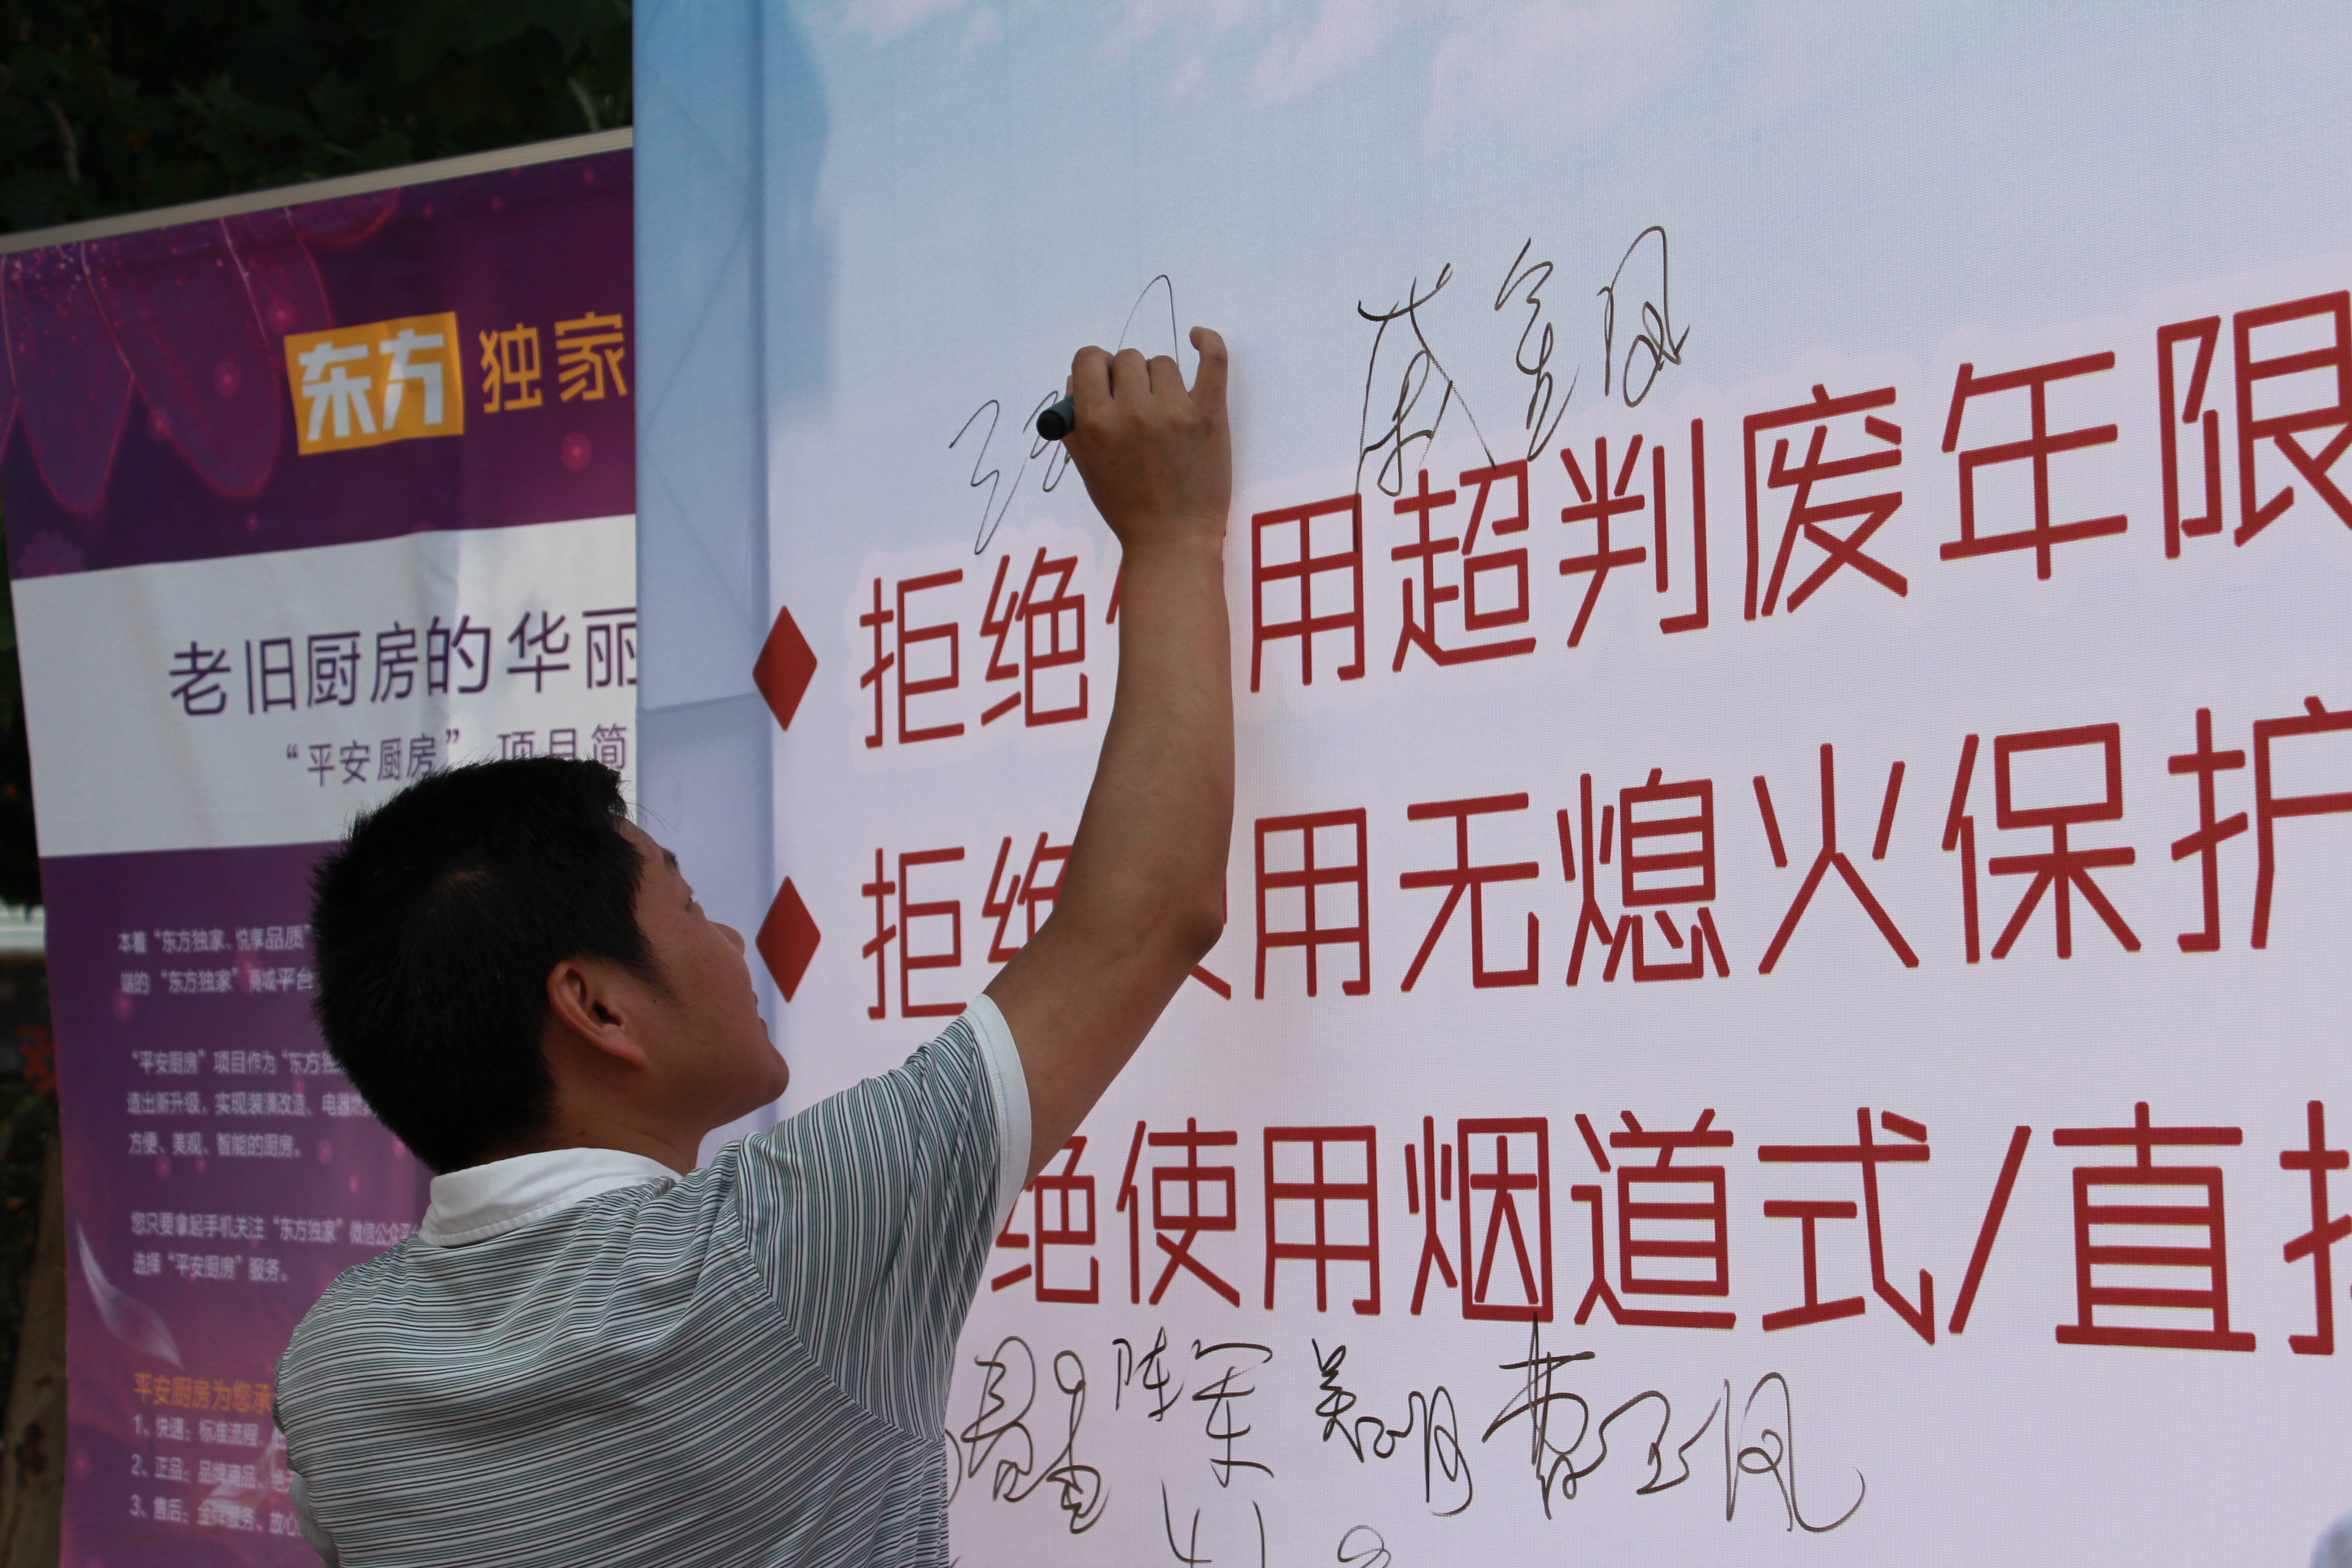 东方独家
老旧厨房的华丽
“平安厨房”项目简
本着“东方独家、悦享品质”
端的“东方独家”商城平台
“平安厨房”项目作为“东方独
造出新升级，实现装潢改造、电器燃
方便、美观、智能的厨房。
您只要拿起手机关注“东方独家”微信公众平台
选择“平安厨房”服务。
平安厨房为您承
1、快速：标准流程，
2、正品：品牌商品、绝
3、售后：金牌服务、放心
拒绝 用超判废年限
拒绝 用无熄火保护
绝使用烟道式/直排
陈军